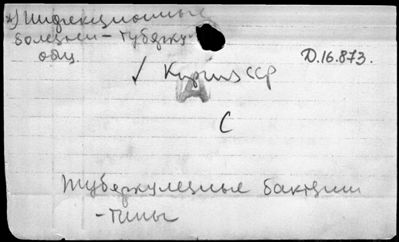 *) Инфекционные
болезни – туберку.
общ.
Д.16.873.
✓ КиргизССР
С
Туберкулезные бактерии
– типы